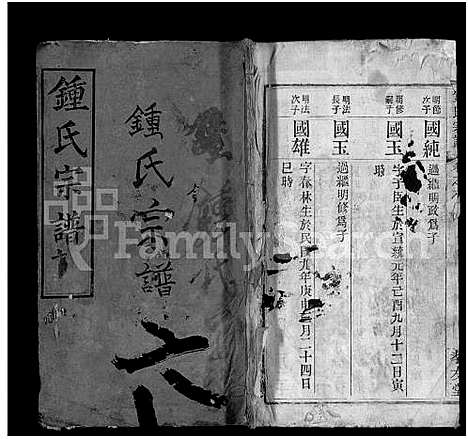 明節
次子
國純
過繼明政爲子
明修
嗣子
國玉
字子臣生於宣統元年己酉九月十二日寅
時
明法
長子
國玉
過繼明修爲子
明法
次子
國雄
字春林生於民國九年庚申二月二十四日
巳時
鍾氏宗譜
六
鍾氏宗譜
FamilySearch